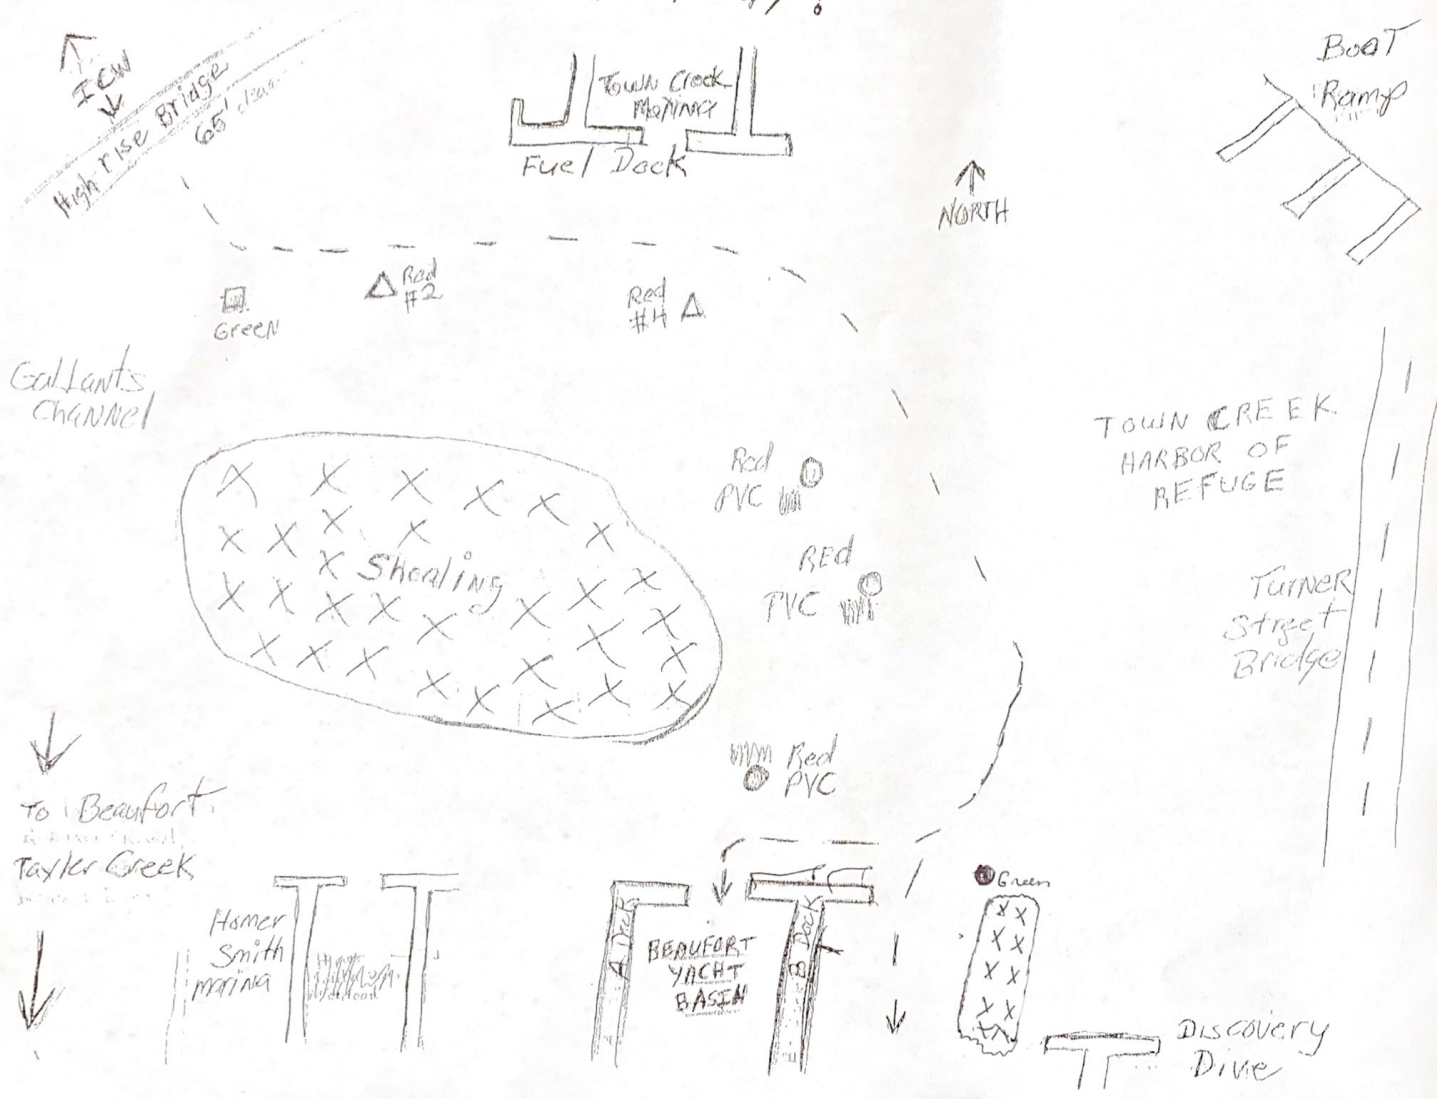 ICW
High rise Bridge
65' clear
Town Creek
Marina
Fuel Dock
Boat
Ramp
NORTH
Green
Red
#2
Red
#4
Gallants
Channel
TOWN CREEK
HARBOR OF
REFUGE
Red
PVC
RED
PVC
Shoaling
Turner
Street
Bridge
Red
PVC
To Beaufort
Tayler Creek
Homer
Smith
marina
A Dock
BEAUFORT
YACHT
BASIN
B Dock
Green
Discovery
Dive